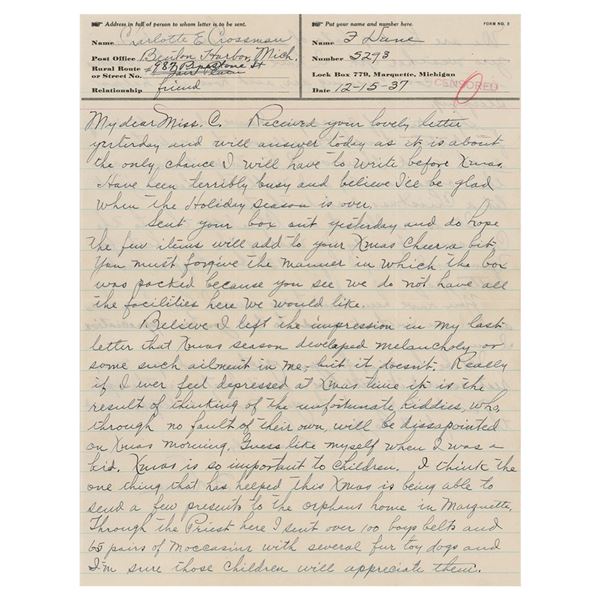 Address in full of person to whom letter is to be sent.
Name Charlotte E Crossman
Post Office Benton Harbor, Mich.
Rural Route
or Street No. #987 Pipestone St
Fair Plain
Relationship friend
Put your name and number here.
FORM NO. 3
Name F Dane
Number 5293
Lock Box 779, Marquette, Michigan
Date 12-15-37
CENSORED
My dear Miss. C. Received your lovely letter
yesterday and will answer today as it is about
the only chance I will have to write before Xmas.
Have been terribly busy and believe I'll be glad
when the Holiday season is over.
Sent your box out yesterday and do hope
the few items will add to your Xmas Cheer a bit.
You must forgive the manner in which the box
was packed because you see we do not have all
the facilities here we would like.
Believe I left the impression in my last
letter that Xmas season developed melancholy or
some such ailment in me, but it doesn't. Really
if I ever feel depressed at Xmas time it is the
result of thinking of the unfortunate kiddies, who,
through no fault of their own will be dissapointed
on Xmas morning. Guess like myself when I was a
kid. Xmas is so important to children. I think the
one thing that has helped this Xmas is being able to
send a few presents to the orphans home in Marquette.
Through the Priest here I sent over 100 boys belts and
65 pairs of Moccasins with several fur toy dogs and
I'm sure those children will appreciate them.